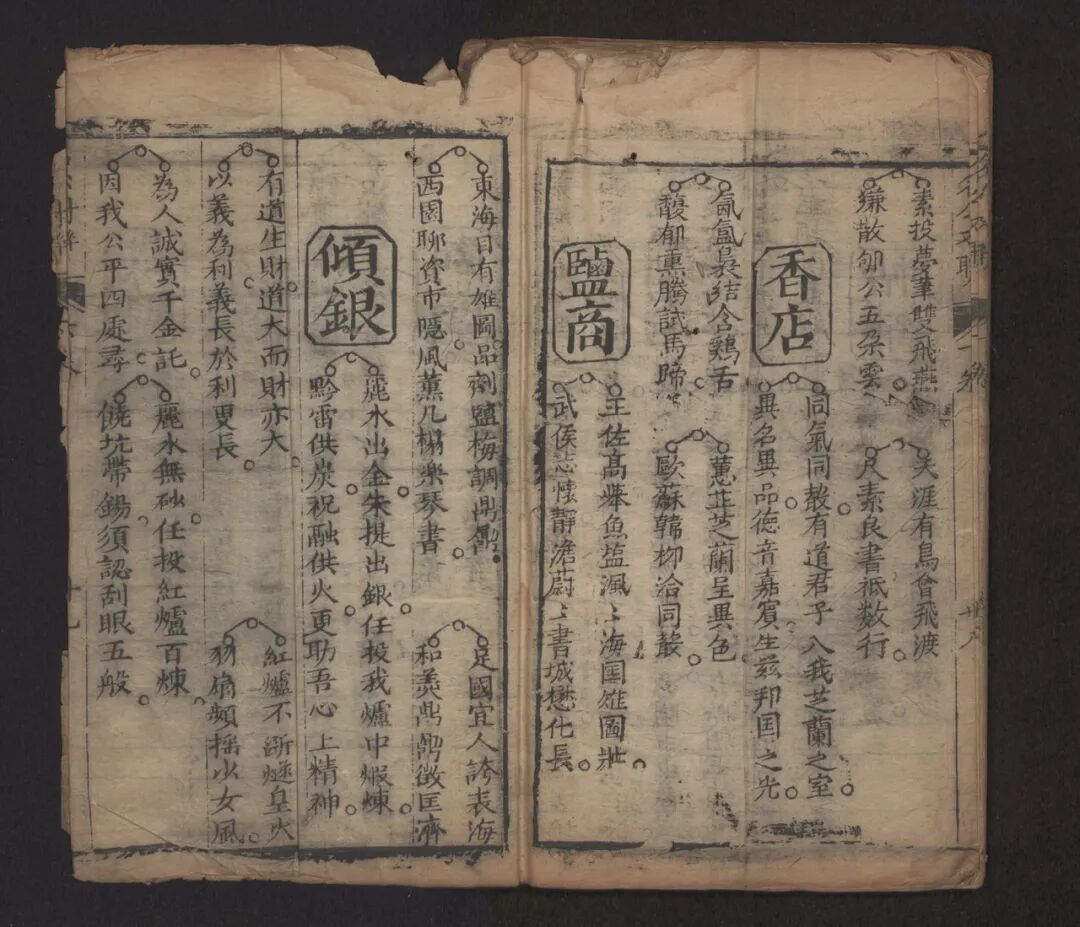 素投夢筆雙飛燕
緘散郇公五朵雲
天涯有鳥曾飛渡
尺素良書祗數行
香店
同氣同殽有道君子入我芝蘭之室
異名異品德音嘉賓生茲邦囯之光
氤氳裊結含鷄舌
馥郁熏騰試馬蹄
蕙芷芝蘭呈異色
歐蘇韓柳洽同叢
鹽商
王佐高舉魚塩渢〻海囯雄圖壯
武侯志懷靜澹蔚〻書城懋化長
東海日有雄圖品劑鹽梅調鼎鼐
西園聊資市隱風薰几榻樂琴書
足國宜人誇表海
和羮鼎鼐徵匡濟
傾銀
麗水出金朱提出銀任投我爐中煅煉
黔雷供炭祝融供火更助吾心上精神
有道生財道大而財亦大
以義為利義長於利更長
紅爐不斷燧皇火
羽扇頻摇少女風
為人誠實千金託
因我公平四處尋
麗水無砂任投紅爐百煉
饒坑帶錫須認刮眼五般